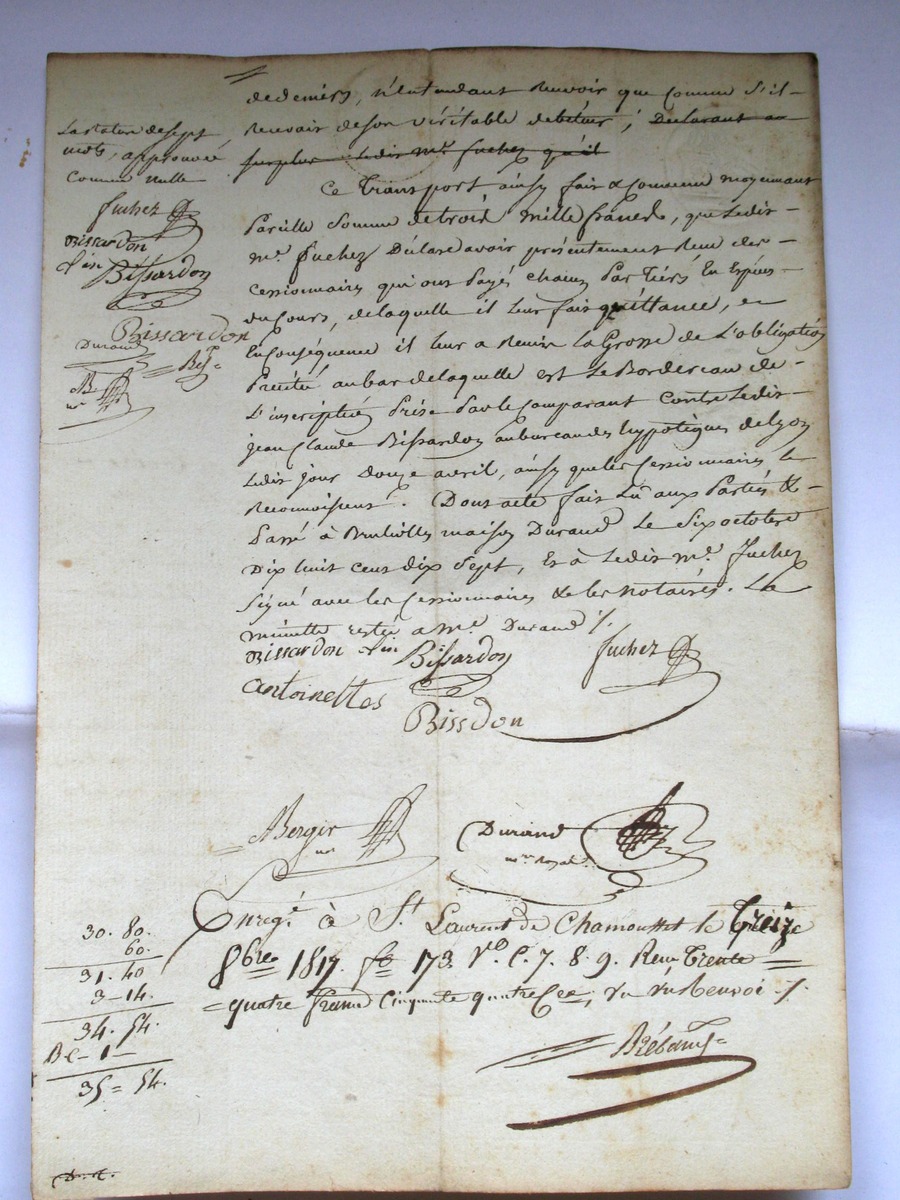 dedeniers, n'entendant Recevoir que Comme s'il
Recevoir deson véritable debiteur ; Declarant au
surplus Ledit Me. fuchez qu'il
La rature de sept
mots, approuvée
Comme nulle
fuchez
Bissardon
Bissardon
Bissardon
Durand
Ce Transport ainsy fait & Convenu moyennant
Pareille Somme detrois mille francs, que Ledit
Me. fuchez Déclare avoir présentement Reçu des
Cessionnaires qui ont Payé chacun Par Tiers En Espèces
du Cours, de laquelle il leur fait quittance, en
Conséquence il leur a Remis La Grosse de L'obligation
Précité au bas de laquelle est Le Bordereau de
L'inscription Prise Par le Comparant Contre Ledit
jean Claude Bissardon au bureau des hypotèques de Lyon
Ledit jour Douze avril, ainsy que les Cessionnaires le
Reconnoissent. Dont acte fait Lu aux Parties &
Passé à maison Durand Le Six octobre
Dix huit cent dix Sept, Et à Ledit Me. fuchez
Signé avec les Cessionnaires & les Notaires. La
minutte restée a Me. Durand /.
Bissardon Bissardon fuchez
antoinette
Bissdon
Berger Durand
nre Royal
Enregé à St Laurent de Chamousset le Treize
8bre 1817. fo 173. Vo C. 7. 8. 9. Reçu Trente
quatre francs Cinquante quatre Ces, Renvoi /.
30. 80.
60.
31. 40
3-14.
34. 54.
- 1 -
35 = 54.